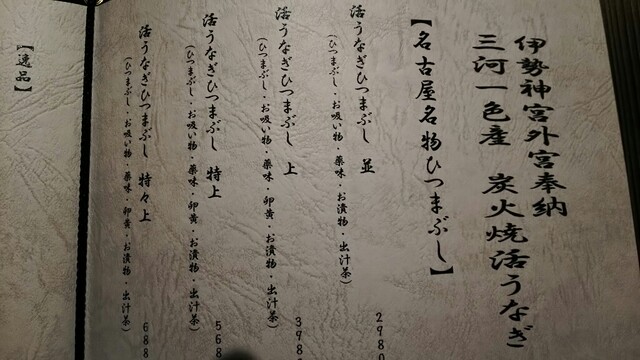 伊勢神宮外宮奉納
三河一色産 炭火焼活うなぎ
【名古屋名物ひつまぶし】
活うなぎひつまぶし 並
(ひつまぶし・お吸い物・薬味・お漬物・出汁茶)
2980
活うなぎひつまぶし 上
(ひつまぶし・お吸い物・薬味・卵黄・お漬物・出汁茶)
398
活うなぎひつまぶし 特上
(ひつまぶし・お吸い物・薬味・卵黄・お漬物・出汁茶)
568
活うなぎひつまぶし 特々上
(ひつまぶし・お吸い物・薬味・卵黄・お漬物・出汁茶)
688
【逸品】